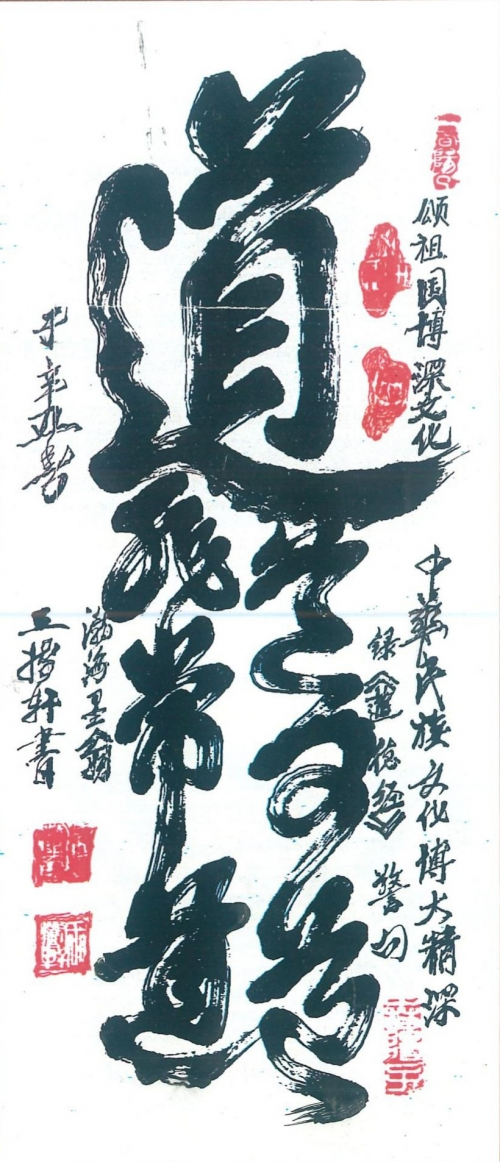 颂祖国博深文化
中華民族文化博大精深
録《道德經》警句
道
可道
非常道
渤海墨翁
三揚軒書